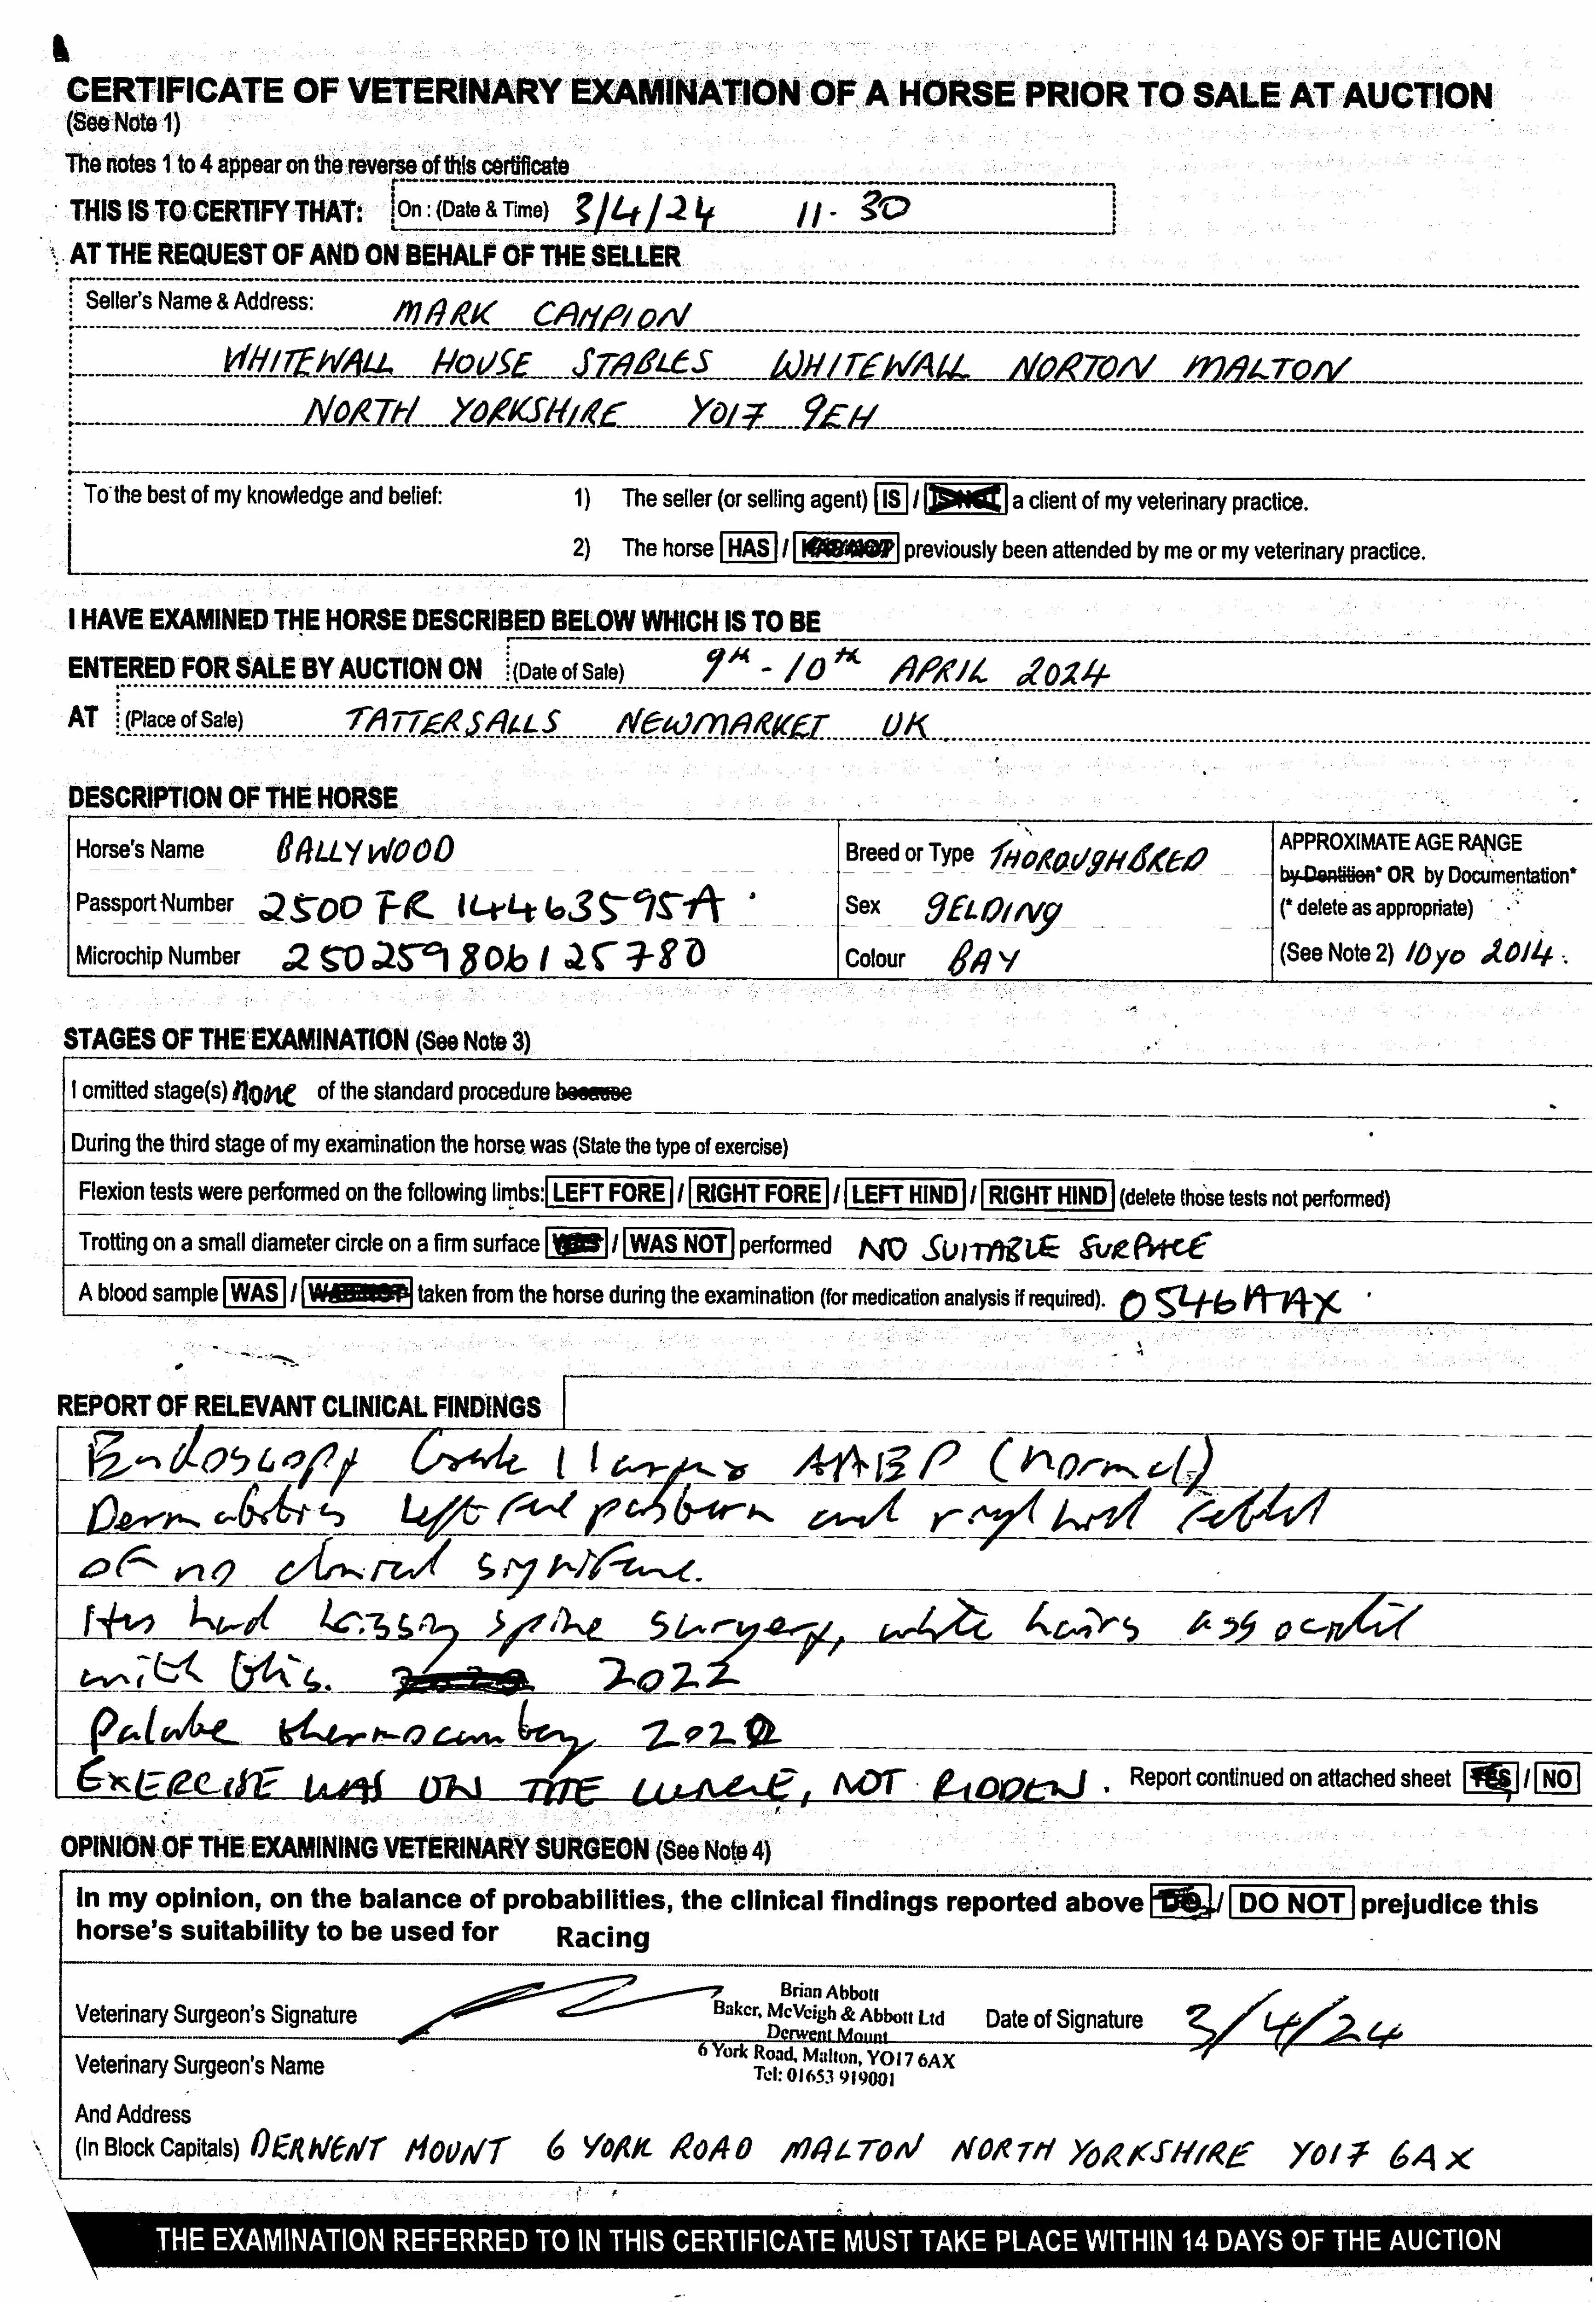 CERTIFICATE OF VETERINARY EXAMINATION OF A HORSE PRIOR TO SALE AT AUCTION
(See Note 1)
The notes 1 to 4 appear on the reverse of this certificate
THIS IS TO CERTIFY THAT: On : (Date & Time) 3/4/24 11-30
AT THE REQUEST OF AND ON BEHALF OF THE SELLER
Seller's Name & Address: MARK CAMPION
WHITEWALL HOUSE STABLES WHITEWALL NORTON MALTON
NORTH YORKSHIRE YO17 9EH
To the best of my knowledge and belief: 1) The seller (or selling agent) IS / IS NOT a client of my veterinary practice.
2) The horse HAS / HAS NOT previously been attended by me or my veterinary practice.
I HAVE EXAMINED THE HORSE DESCRIBED BELOW WHICH IS TO BE
ENTERED FOR SALE BY AUCTION ON (Date of Sale) 9th - 10th APRIL 2024
AT (Place of Sale) TATTERSALLS NEWMARKET UK
DESCRIPTION OF THE HORSE
Horse's Name BALLYWOOD
Passport Number 2500 FR 14463595A
Microchip Number 250259806125780
Breed or Type THOROUGHBRED
Sex GELDING
Colour BAY
APPROXIMATE AGE RANGE
by Dentition* OR by Documentation*
(* delete as appropriate)
(See Note 2) 10yo 2014.
STAGES OF THE EXAMINATION (See Note 3)
I omitted stage(s) none of the standard procedure because
During the third stage of my examination the horse was (State the type of exercise)
Flexion tests were performed on the following limbs: LEFT FORE / RIGHT FORE / LEFT HIND / RIGHT HIND (delete those tests not performed)
Trotting on a small diameter circle on a firm surface WAS / WAS NOT performed NO SUITABLE SURFACE
A blood sample WAS / WAS NOT taken from the horse during the examination (for medication analysis if required). 0546AAX
REPORT OF RELEVANT CLINICAL FINDINGS
Endoscopy Grade 1 larynx AAEP (normal)
Dermatitis left fore pastern and right hind
of no clinical significance.
Has had kissing spine surgery, white hairs associated
with this. 2022
Palate thermocautery 2022
EXERCISE WAS ON THE LUNGE, NOT RIDDEN. Report continued on attached sheet YES / NO
OPINION OF THE EXAMINING VETERINARY SURGEON (See Note 4)
In my opinion, on the balance of probabilities, the clinical findings reported above DO / DO NOT prejudice this
horse's suitability to be used for Racing
Brian Abbott
Baker, McVeigh & Abbott Ltd
Derwent Mount
6 York Road, Malton, YO17 6AX
Tel: 01653 919001
Veterinary Surgeon's Signature
Date of Signature 3/4/24
Veterinary Surgeon's Name
And Address
(In Block Capitals) DERWENT MOUNT 6 YORK ROAD MALTON NORTH YORKSHIRE YO17 6AX
THE EXAMINATION REFERRED TO IN THIS CERTIFICATE MUST TAKE PLACE WITHIN 14 DAYS OF THE AUCTION